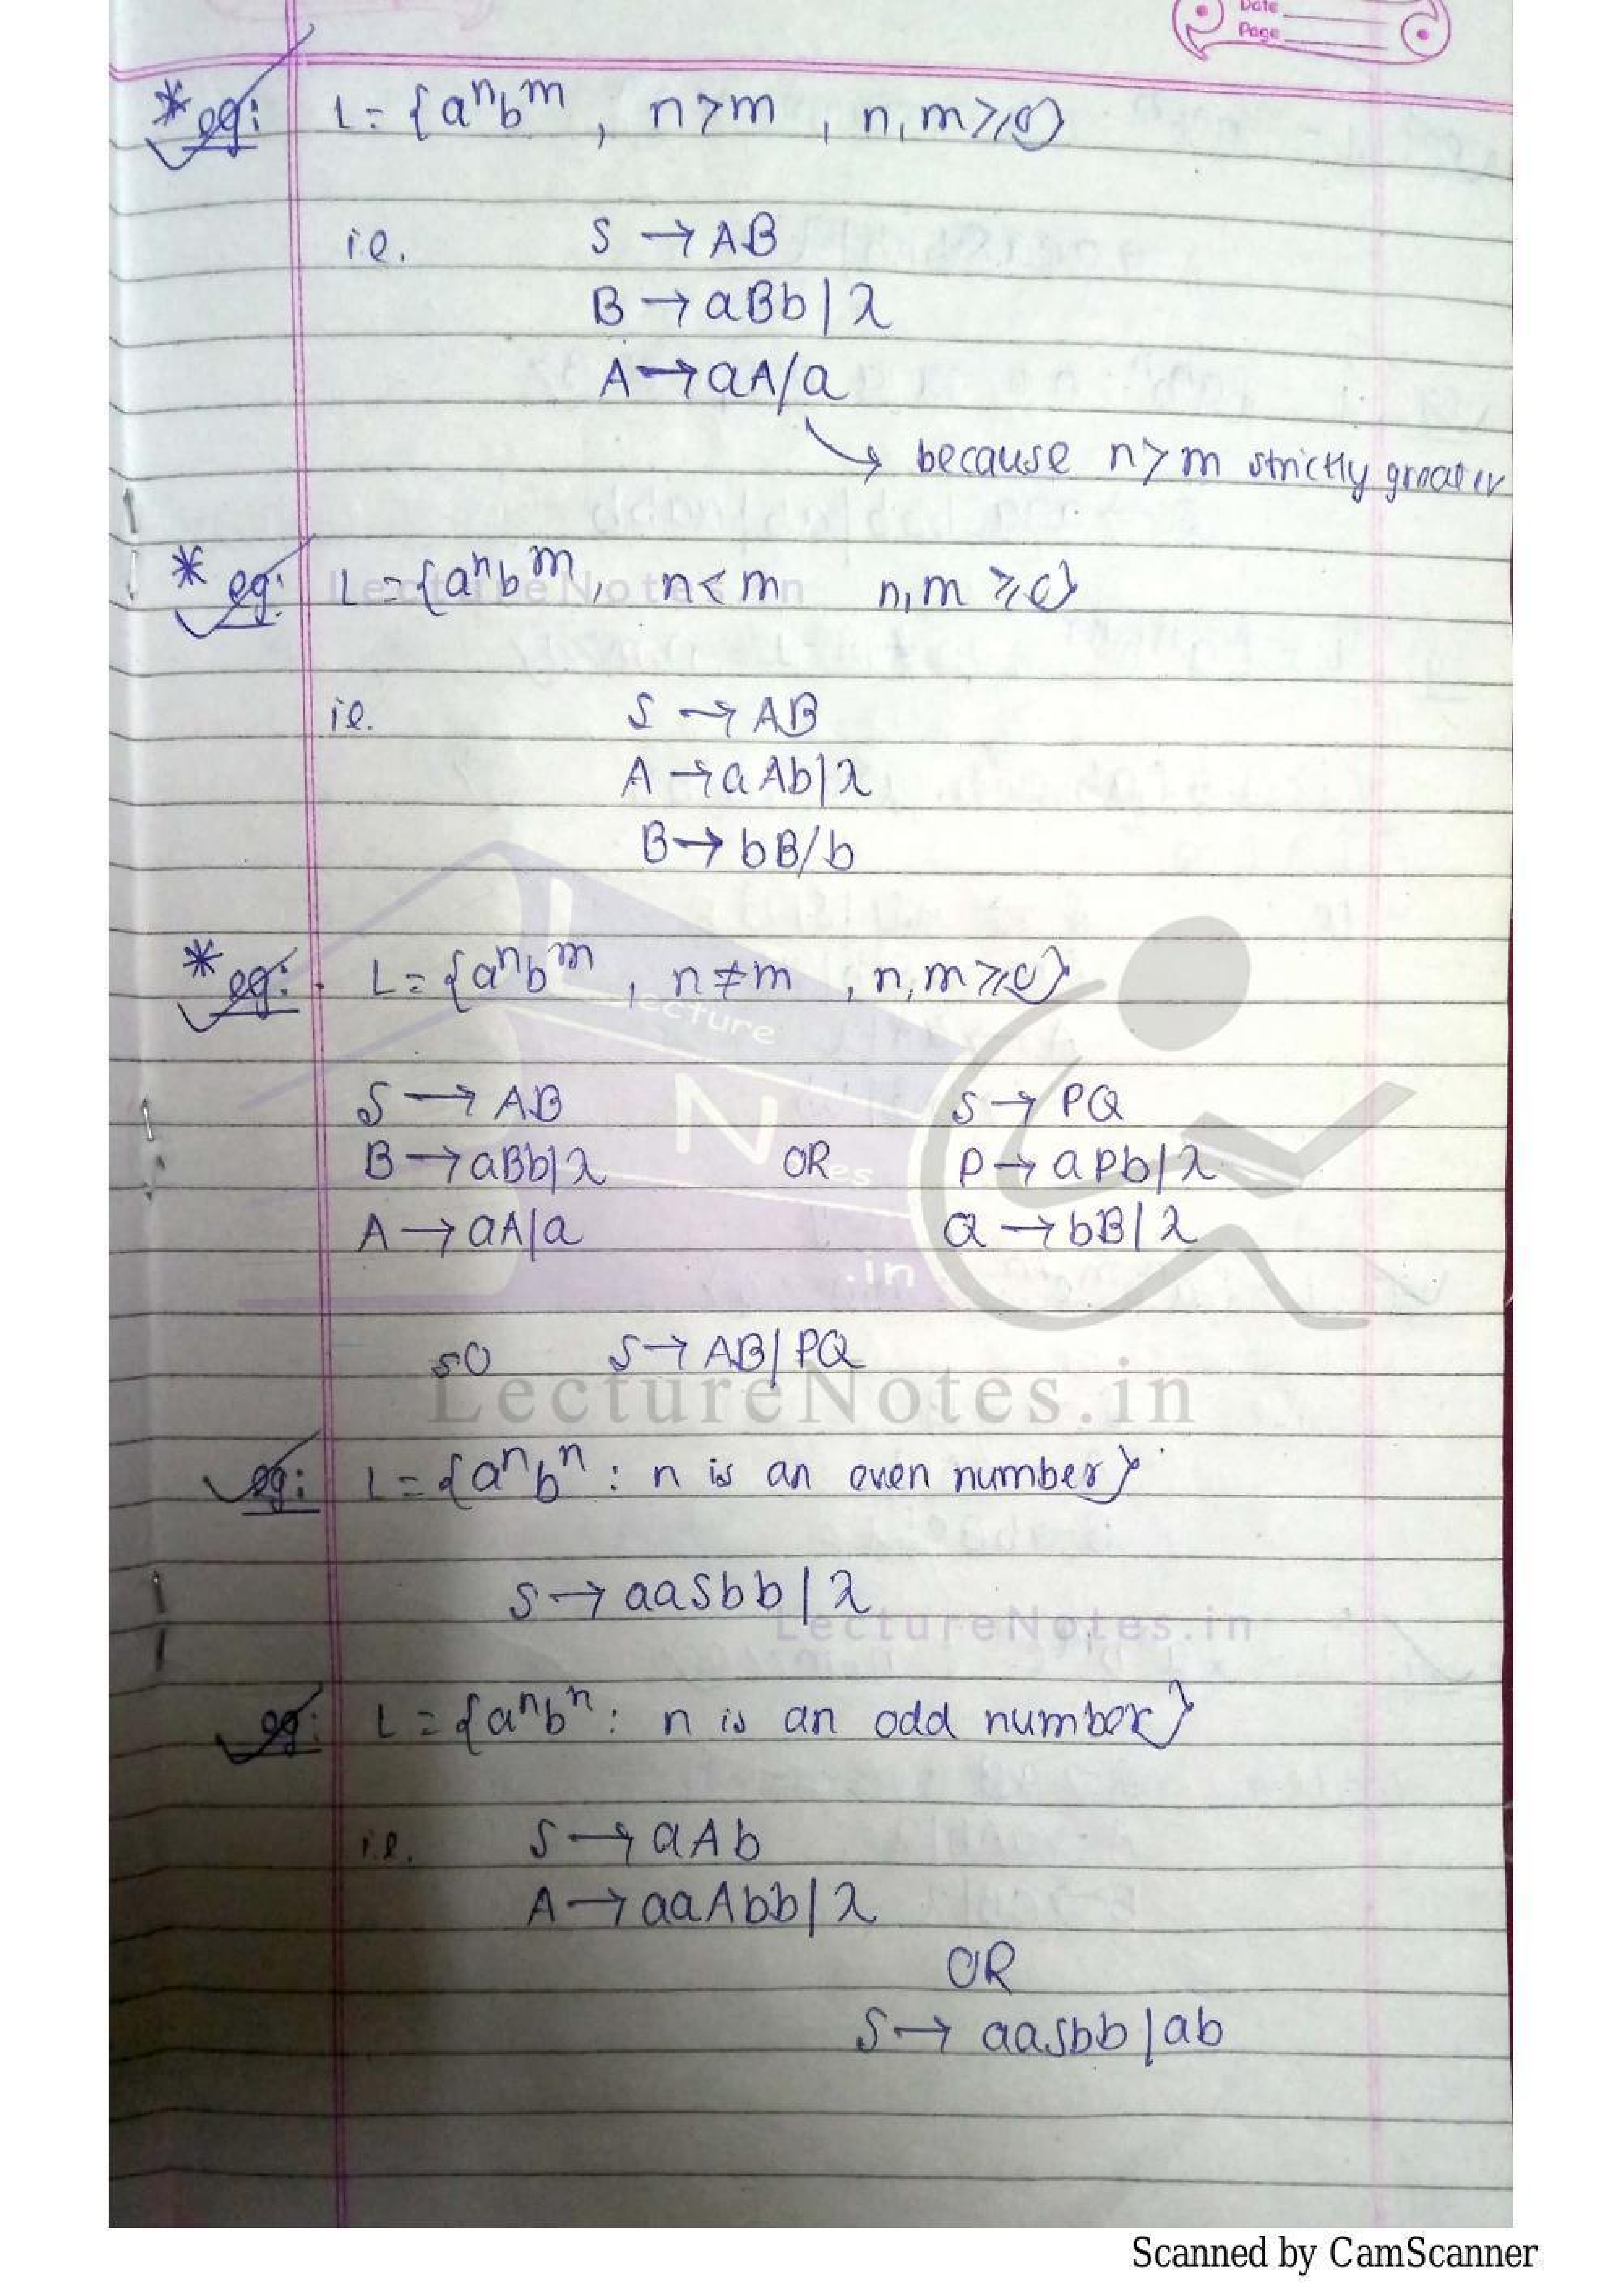 Date
Page
* eg: L = {aⁿbᵐ, n>m, n,m≥0}
ie. S → AB
B → aBb|λ
A → aA/a
→ because n>m strictly greater
* eg: L = {aⁿbᵐ, n<m n,m ≥0}
LectureNotes.in
ie. S → AB
A → aAb|λ
B → bB/b
* eg: L = {aⁿbᵐ, n≠m, n,m≥0}
Lecture
S → AB S → PQ
N
B → aBb|λ OR P → aPb|λ
es
A → aA|a Q → bB|λ
.in
so S → AB|PQ
LectureNotes.in
eg: L = {aⁿbⁿ : n is an even number}
S → aaSbb|λ
LectureNotes.in
eg: L = {aⁿbⁿ : n is an odd number}
i.e. S → aAb
A → aaAbb|λ
OR
S → aaSbb|ab
Scanned by CamScanner